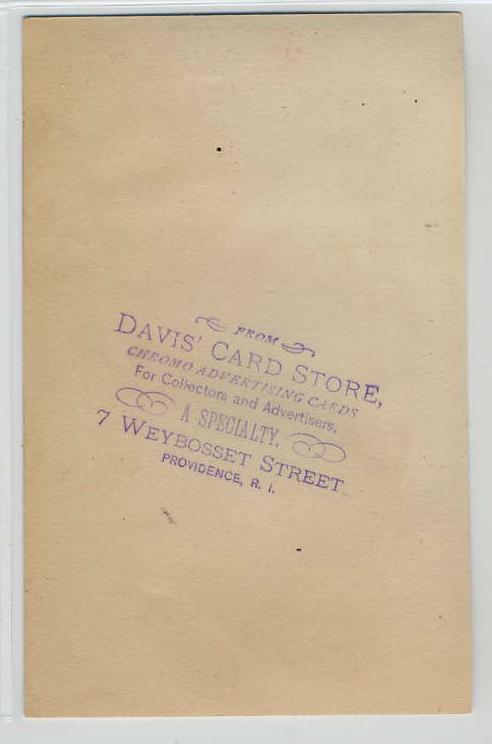 FROM
DAVIS' CARD STORE,
CHROMO ADVERTISING CARDS
For Collectors and Advertisers,
A SPECIALTY.
7 WEYBOSSET STREET
PROVIDENCE, R. I.